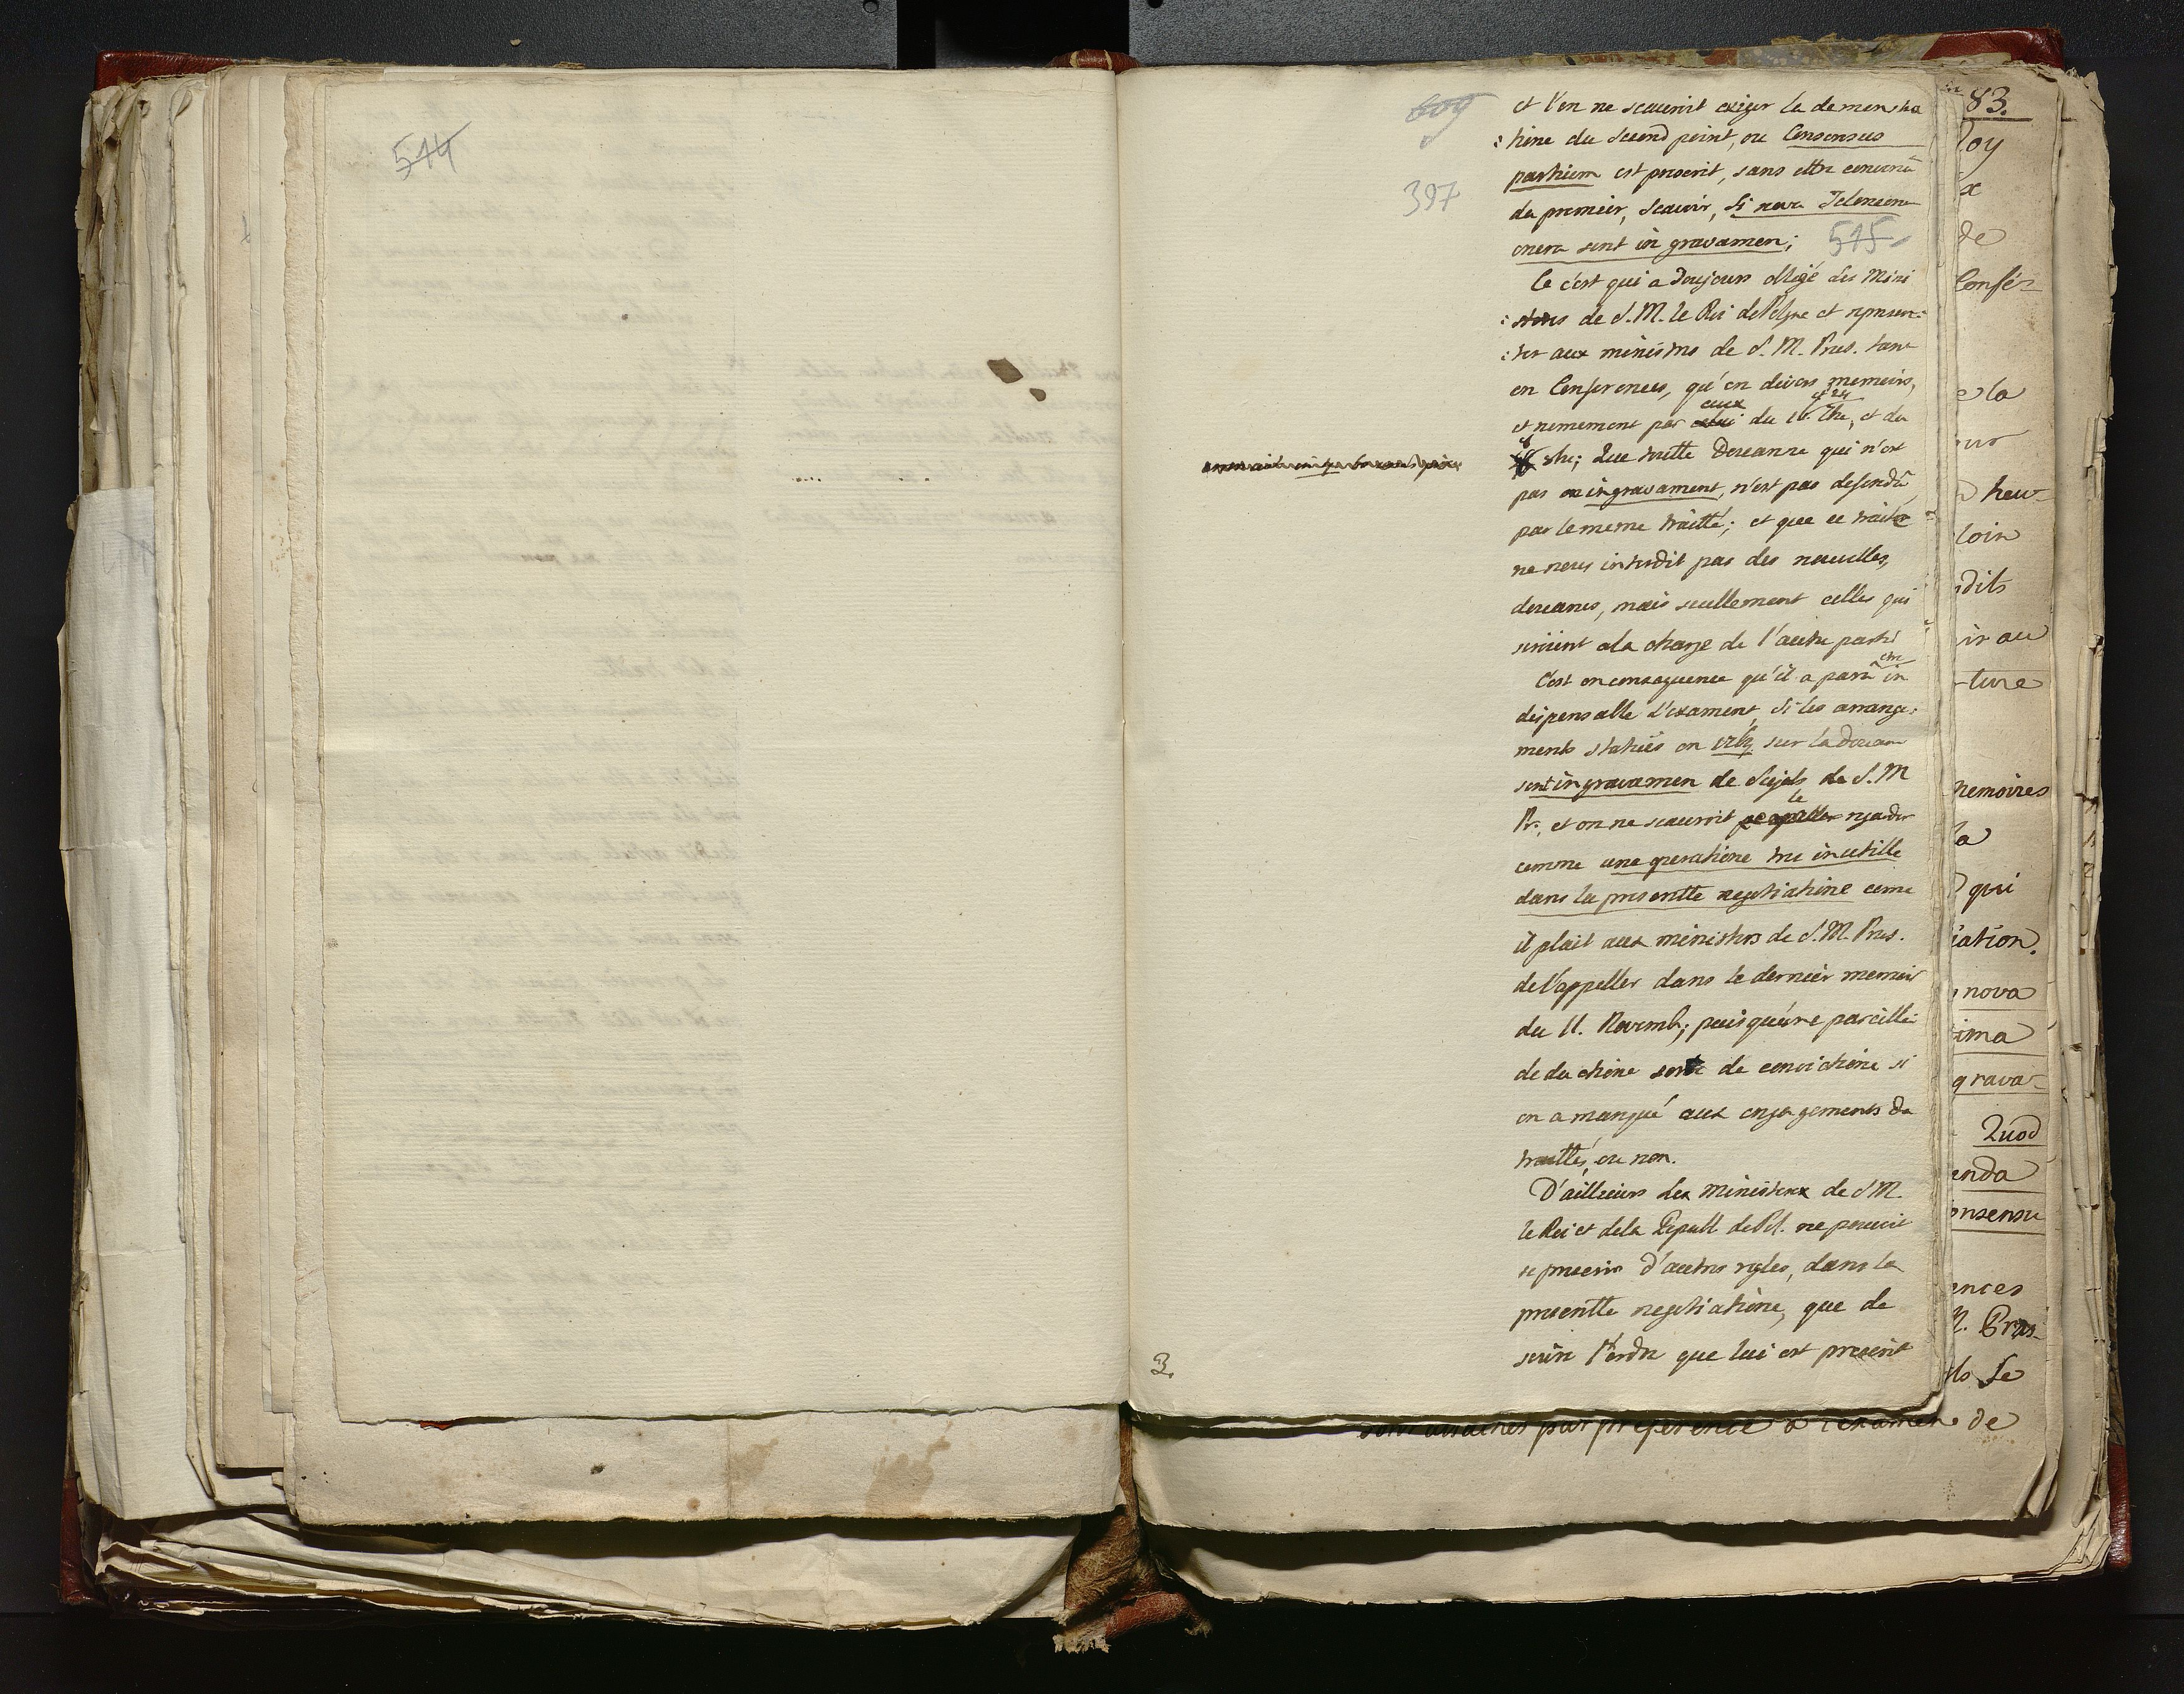 544
609
397
et l'on ne scauroit exiger la demonstra
:tione du second point, ou Consensus
partium est prescrit, sans ettre convenû
du premier, scavoir, si nova Telonea
onera sunt in gravamen;
515
Ce c'est qui a toujours obligé les Mini
:stres de S. M. le Roi de Pologne et represen:
:ter aux ministres de S. M. Prus. tant
en Conferences, qu'en divers memoirs,
et nomement par ceux du 16. et 24 8bre, et du
8 9bre; que toutte Douanne qui n'est
pas in gravament, n'est pas defendû
par le meme traitté; et que ce traité
ne nous interdit pas des nouvelles,
douanes, mais seullement celles qui
seroient a la charge de l'autre parti
C'est en consequence qu'il a parû etre in
dispensable d'exament, si les arrange:
ments statuës en 1764 sur la douane
sont in gravamen de Sujets de S. M
Pr., et on ne scauroit le regarder
comme une operatione tres inutille
dans la presentte negotiatione come
il plait aux ministres de S. M. Prus.
de l'appeller dans le dernier memoir
du 11. Novemb; puisqu'une pareille
deductione sert de convictione si
on a manqué aux engagements du
traittés, ou non.
D'ailleurs les ministeres de S M.
le Roi et de la Republ de Pol. ne peuvent
se prescrir d'autres regles, dans la
presentte negotiatione, que de
suivre l'ordre que lui est prescrit
3.
83.
loy
x
de
Confé-
e la
heu-
loin
dits
ir au
ture
memoires
la
qui
iation.
nova
ima
grava-
Quod
enda
onsensu
ences
M. Prus-
ls se
souveraines par preference a l'examen de